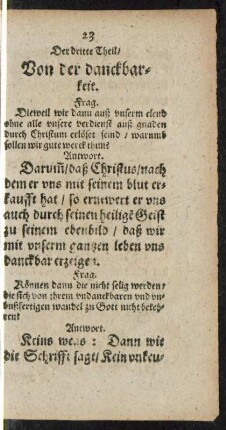 23
Der dritte Theil/
Von der danckbar-
keit.
Frag.
Dieweil wir dann auß vnserm elend
ohne alle vnsere verdienst auß gnaden
durch Christum erlöset seind / warumb
sollen wir gute werck thun?
Antwort.
Darum̃/ daß Christus/ nach
dem er vns mit seinem blut er-
kaufft hat / so ernewert er vns
auch durch seinen heiligẽ Geist
zu seinem ebenbild / daß wir
mit vnserm gantzen leben vns
danckbar erzeigen.
Frag.
Können dann die nicht selig werden/
die sich von ihrem vndanckbaren vnd vn-
bußfertigen wandel zu Gott nicht bekeh-
ren?
Antwort.
Keins wegs : Dann wie
die Schrifft sagt/ Kein vnkeu-